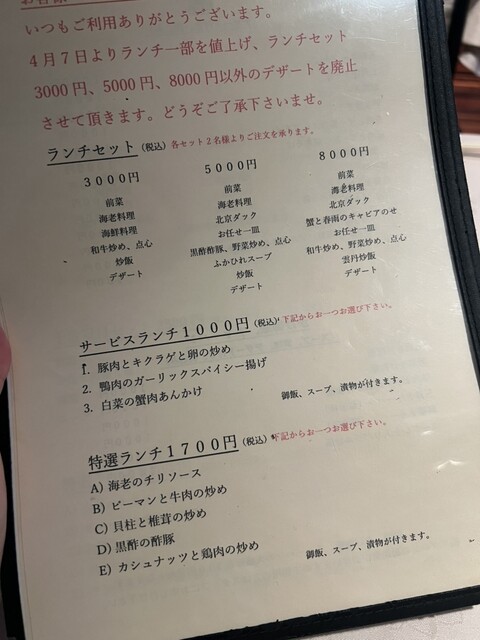 お客様
いつもご利用ありがとうございます。
4月7日よりランチ一部を値上げ、ランチセット
3000円、5000円、8000円以外のデザートを廃止
させて頂きます。どうぞご了承下さいませ。
ランチセット(税込)各セット2名様よりご注文を承ります。
3000円
前菜
海老料理
海鮮料理
和牛炒め、点心
炒飯
デザート
5000円
前菜
海老料理
北京ダック
お任せ一皿
黒酢酢豚、野菜炒め、点心
ふかひれスープ
炒飯
デザート
8000円
前菜
海老料理
北京ダック
蟹と春雨のキャビアのせ
お任せ一皿
和牛炒め、野菜炒め、点心
雲丹炒飯
デザート
サービスランチ1000円(税込)下記からお一つお選び下さい。
1. 豚肉とキクラゲと卵の炒め
2. 鴨肉のガーリックスパイシー揚げ
3. 白菜の蟹肉あんかけ
御飯、スープ、漬物が付きます。
特選ランチ1700円(税込)下記からお一つお選び下さい。
A) 海老のチリソース
B) ピーマンと牛肉の炒め
C) 貝柱と椎茸の炒め
D) 黒酢の酢豚
E) カシュナッツと鶏肉の炒め
御飯、スープ、漬物が付きます。